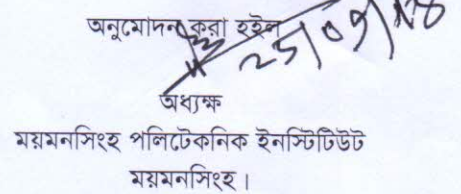 অনুমোদন করা হইল
অধ্যক্ষ
ময়মনসিংহ পলিটেকনিক ইনস্টিটিউট
ময়মনসিংহ।